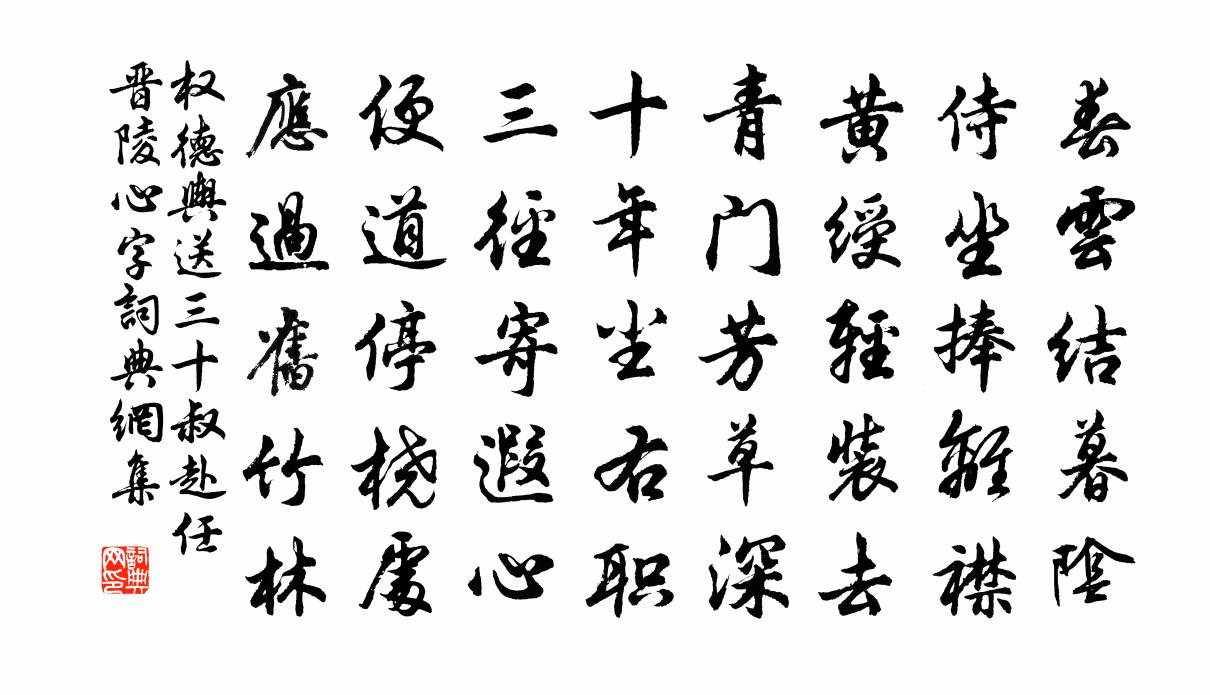 春雲结暮陰
侍坐捧離襟
黄綬輕裝去
青门芳草深
十年尘右职
三徑寄遐心
便道停桡處
應過舊竹林
权德輿送三十叔赴任
晋陵心字詞典網集
詞典网印